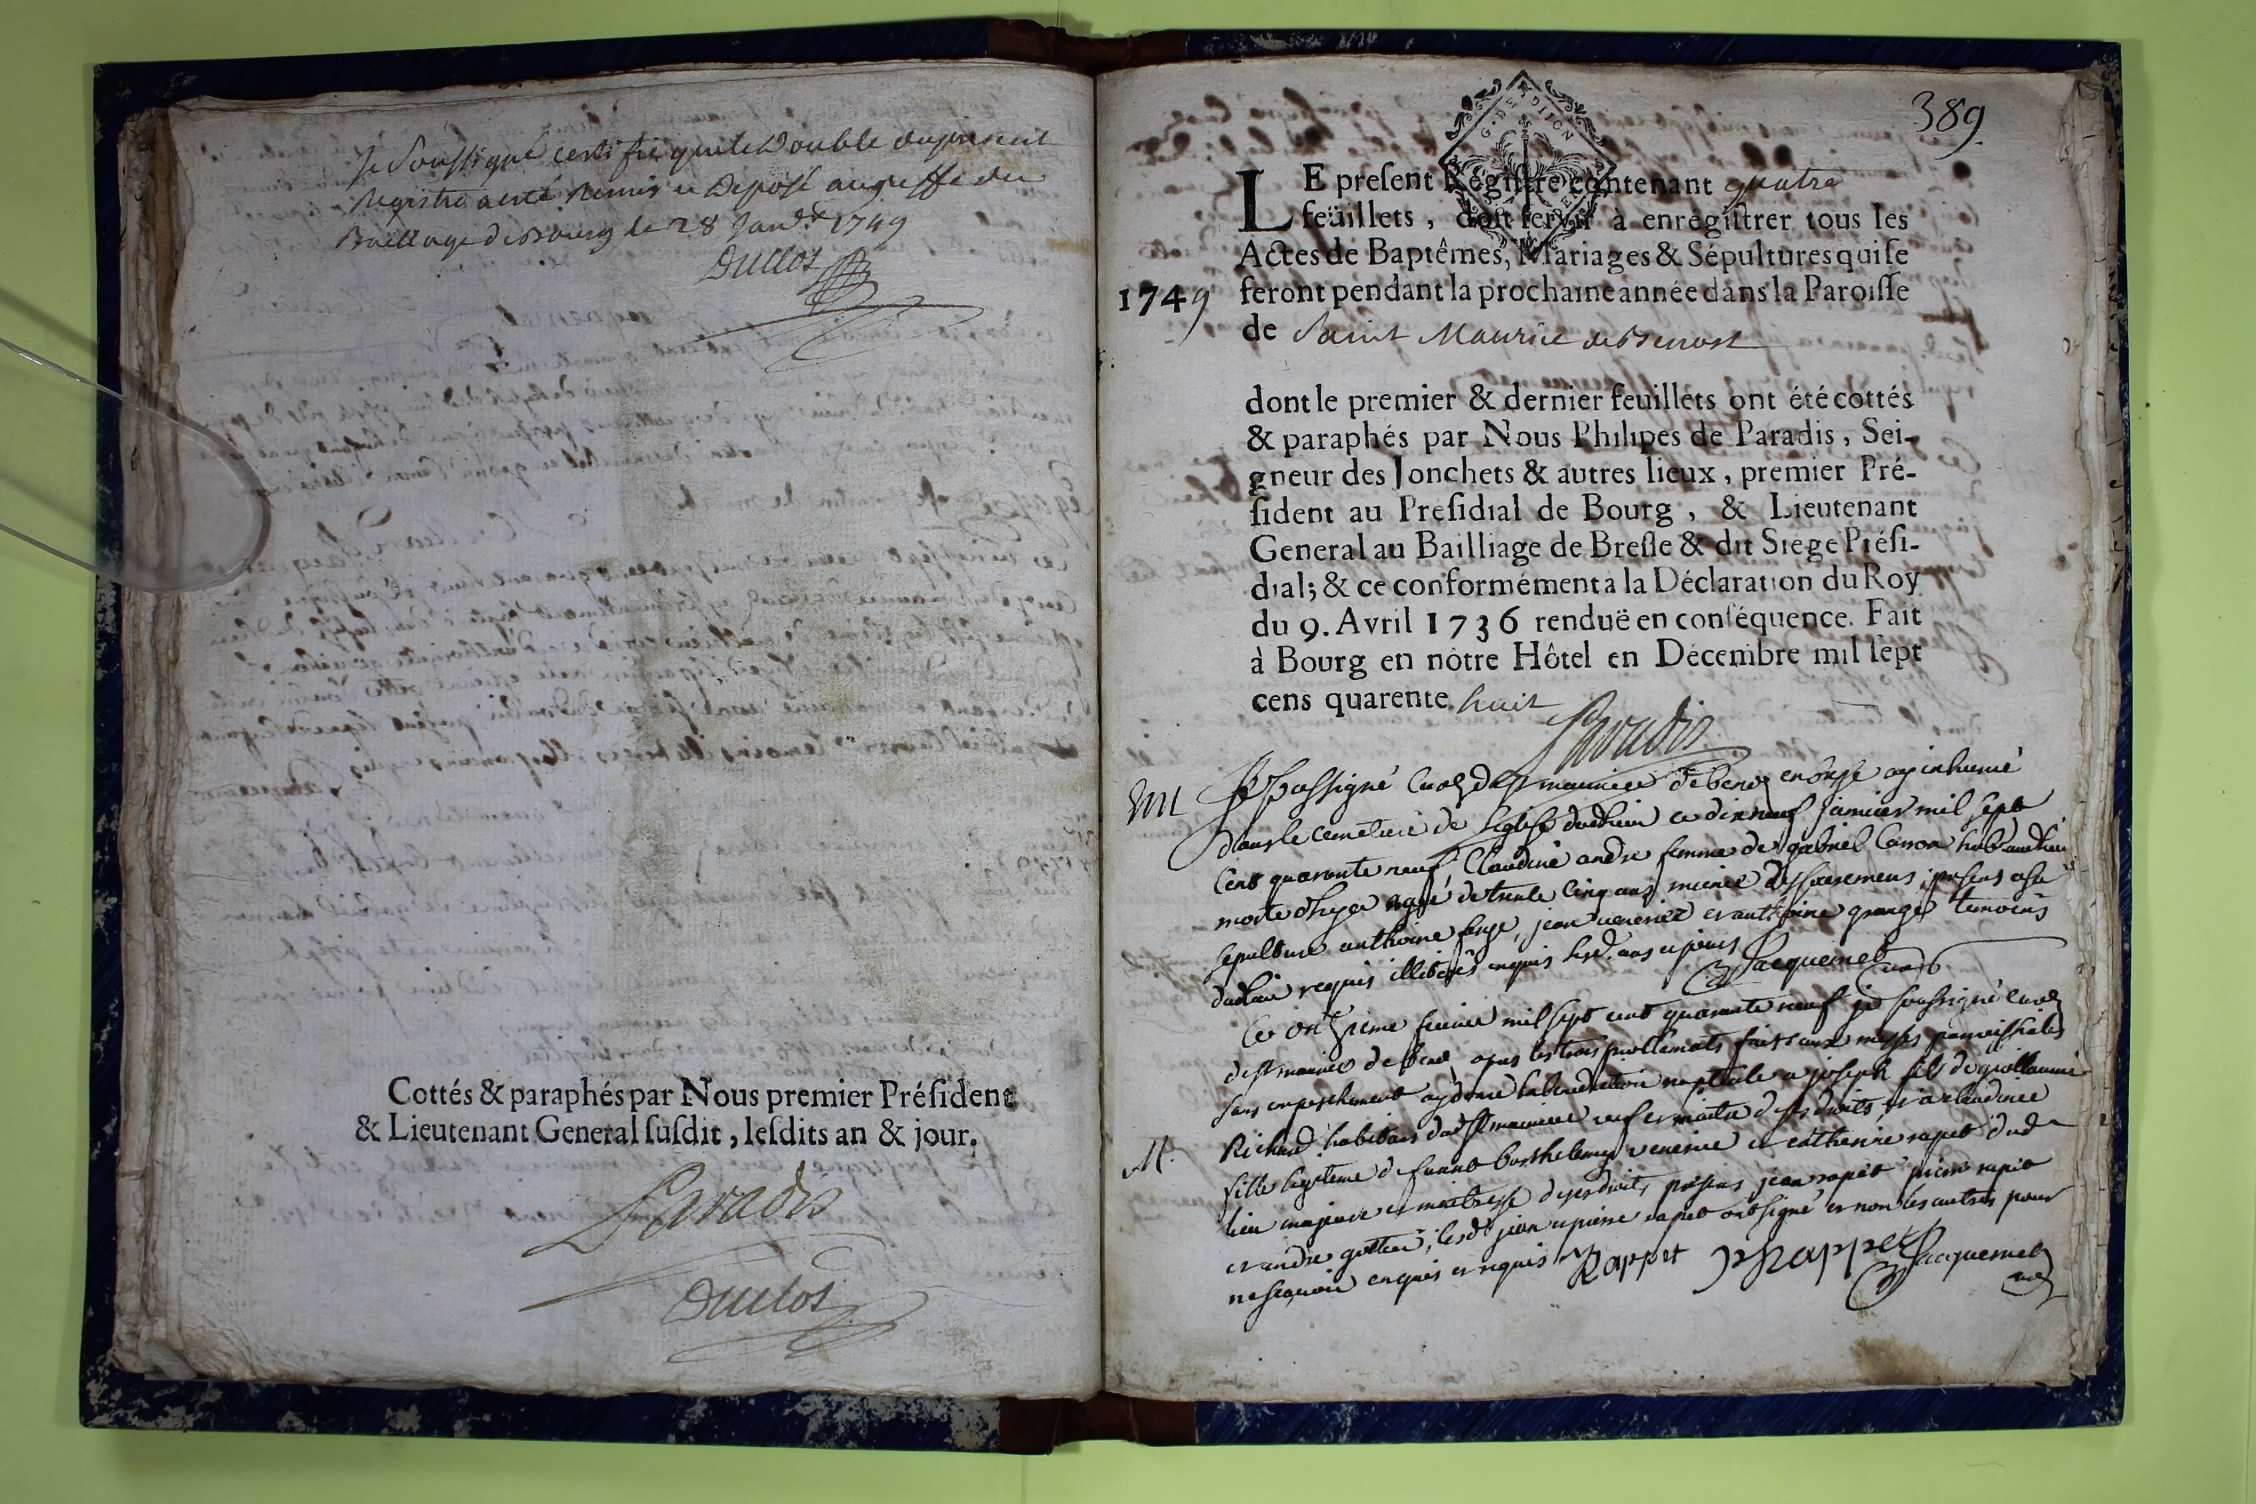 Je Soussigné certifie que le Double du present
Registre a esté remis et Deposé au greffe du
Bailliage de Bourg le 28 Janv.er 1749
Duclos
Cottés & paraphés par Nous premier Présiden
& Lieutenant General susdit, lesdits an & jour.
Paradis
Duclos
389
G. DE DIION
LE present Régistre contenant quatre
feüillets, doit servir à enregistrer tous les
Actes de Baptêmes, Mariages & Sépultures qui se
1749 feront pendant la prochaine année dans la Paroisse
de Saint Maurice de Beinost
dont le premier & dernier feuillets ont été cottés
& paraphés par Nous Philipes de Paradis, Sei-
gneur des Jonchets & autres lieux, premier Pré-
sident au Présidial de Bourg, & Lieutenant
General au Bailliage de Bresse & dit Siége Prési-
dial; & ce conformément à la Déclaration du Roy
du 9. Avril 1736 renduë en conséquence. Fait
à Bourg en nôtre Hôtel en Décembre mil sept
cens quarente huit
Paradis
Je soussigné Curé de st maurice de en bresse ay inhumé
dans le cemetiere de l'eglise dudit lieu ce dixneuf janvier mil sept
Cent quarante neuf Claudine andre femme de gabriel Canon
morte d'hyer agé de trente Cinq ans munie des sacremens, presens a sa
sepulture anthoine jean venerie et anthoine grange temoins
requis illiterés enquis lesd. ans et jours Jacquemet
curé
Ce onzieme fevrier mil sept cent quarante neuf je soussigné curé
de st maurice de apres les trois faits aux messes parroissiales
sans empeschement ay donné la benediction nuptiale a joseph fils de guillaume
Richard habitans dud st maurice maitre de ses droits, et a claudine
M. fille legitime de funct barthelemy venerie et catherine rapet dud
lieu majeure et maitresse de ses droits, presens jean rapet pierre rapet
et andre lesd jean et pierre rapet ont signé et non les autres pour
ne sçavoir enquis et requis Rappet Rappet Jacquemet
curé